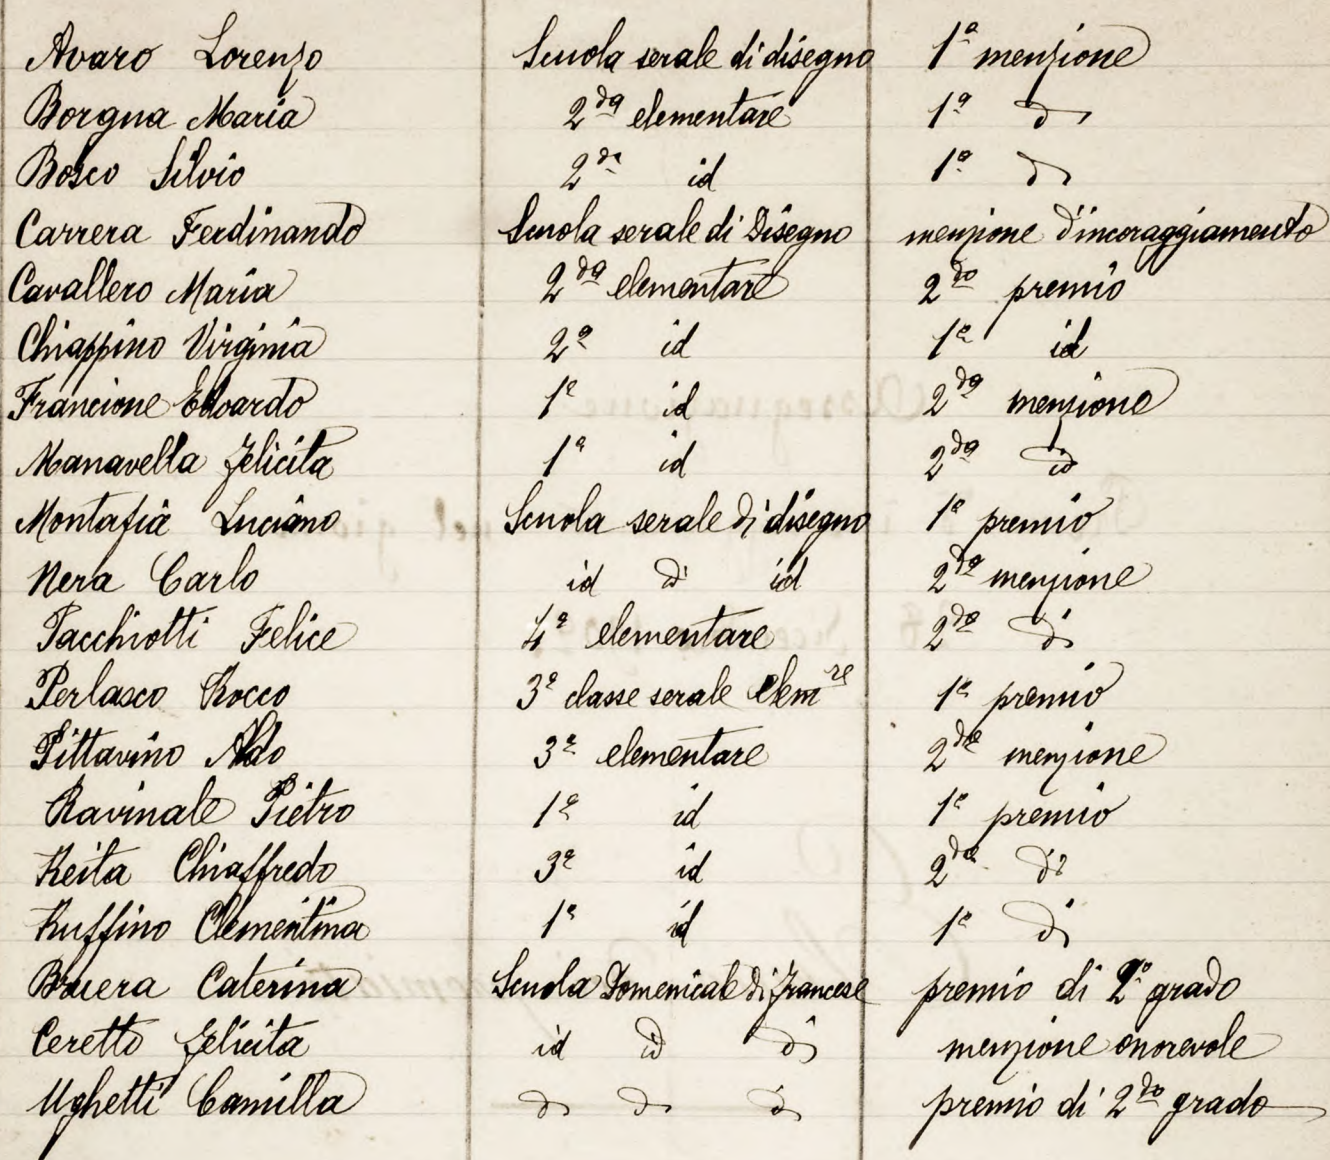 Avaro Lorenzo Scuola serale di disegno 1ª menzione
Borgna Maria 2da elementare 1ª id
Bosco Silvio 2da id 1ª id
Carrera Ferdinando Scuola serale di Disegno menzione d'incoraggiamento
Cavallero Maria 2da elementare 2do premio
Chiappino Virginia 2ª id 1º id
Francione Edoardo 1ª id 2da menzione
Manavella Felicita 1ª id 2da id
Montafia Luciano Scuola serale di disegno 1º premio
Nera Carlo id id id 2da menzione
Pacchiotti Felice 4ª elementare 2da id
Perlasco Rocco 3ª classe serale elemre 1º premio
Pittavino Aldo 3ª elementare 2da menzione
Ravinale Pietro 1ª id 1º premio
Reita Chiaffredo 3ª id 2do id
Ruffino Clementina 1ª id 1º id
Bruera Caterina Scuola Domenicale di francese premio di 2º grado
Ceretto Felicita id id id menzione onorevole
Ughetti Camilla id id id premio di 2do grado